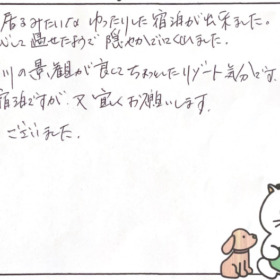 居るみたいな ゆったりした宿泊が出来ました。
して過せたようで穏やかでいてくれました。
川の景観が良くてちょっとしたリゾート気分です。
宿泊ですが、又宜しくお願いします。
ございました。